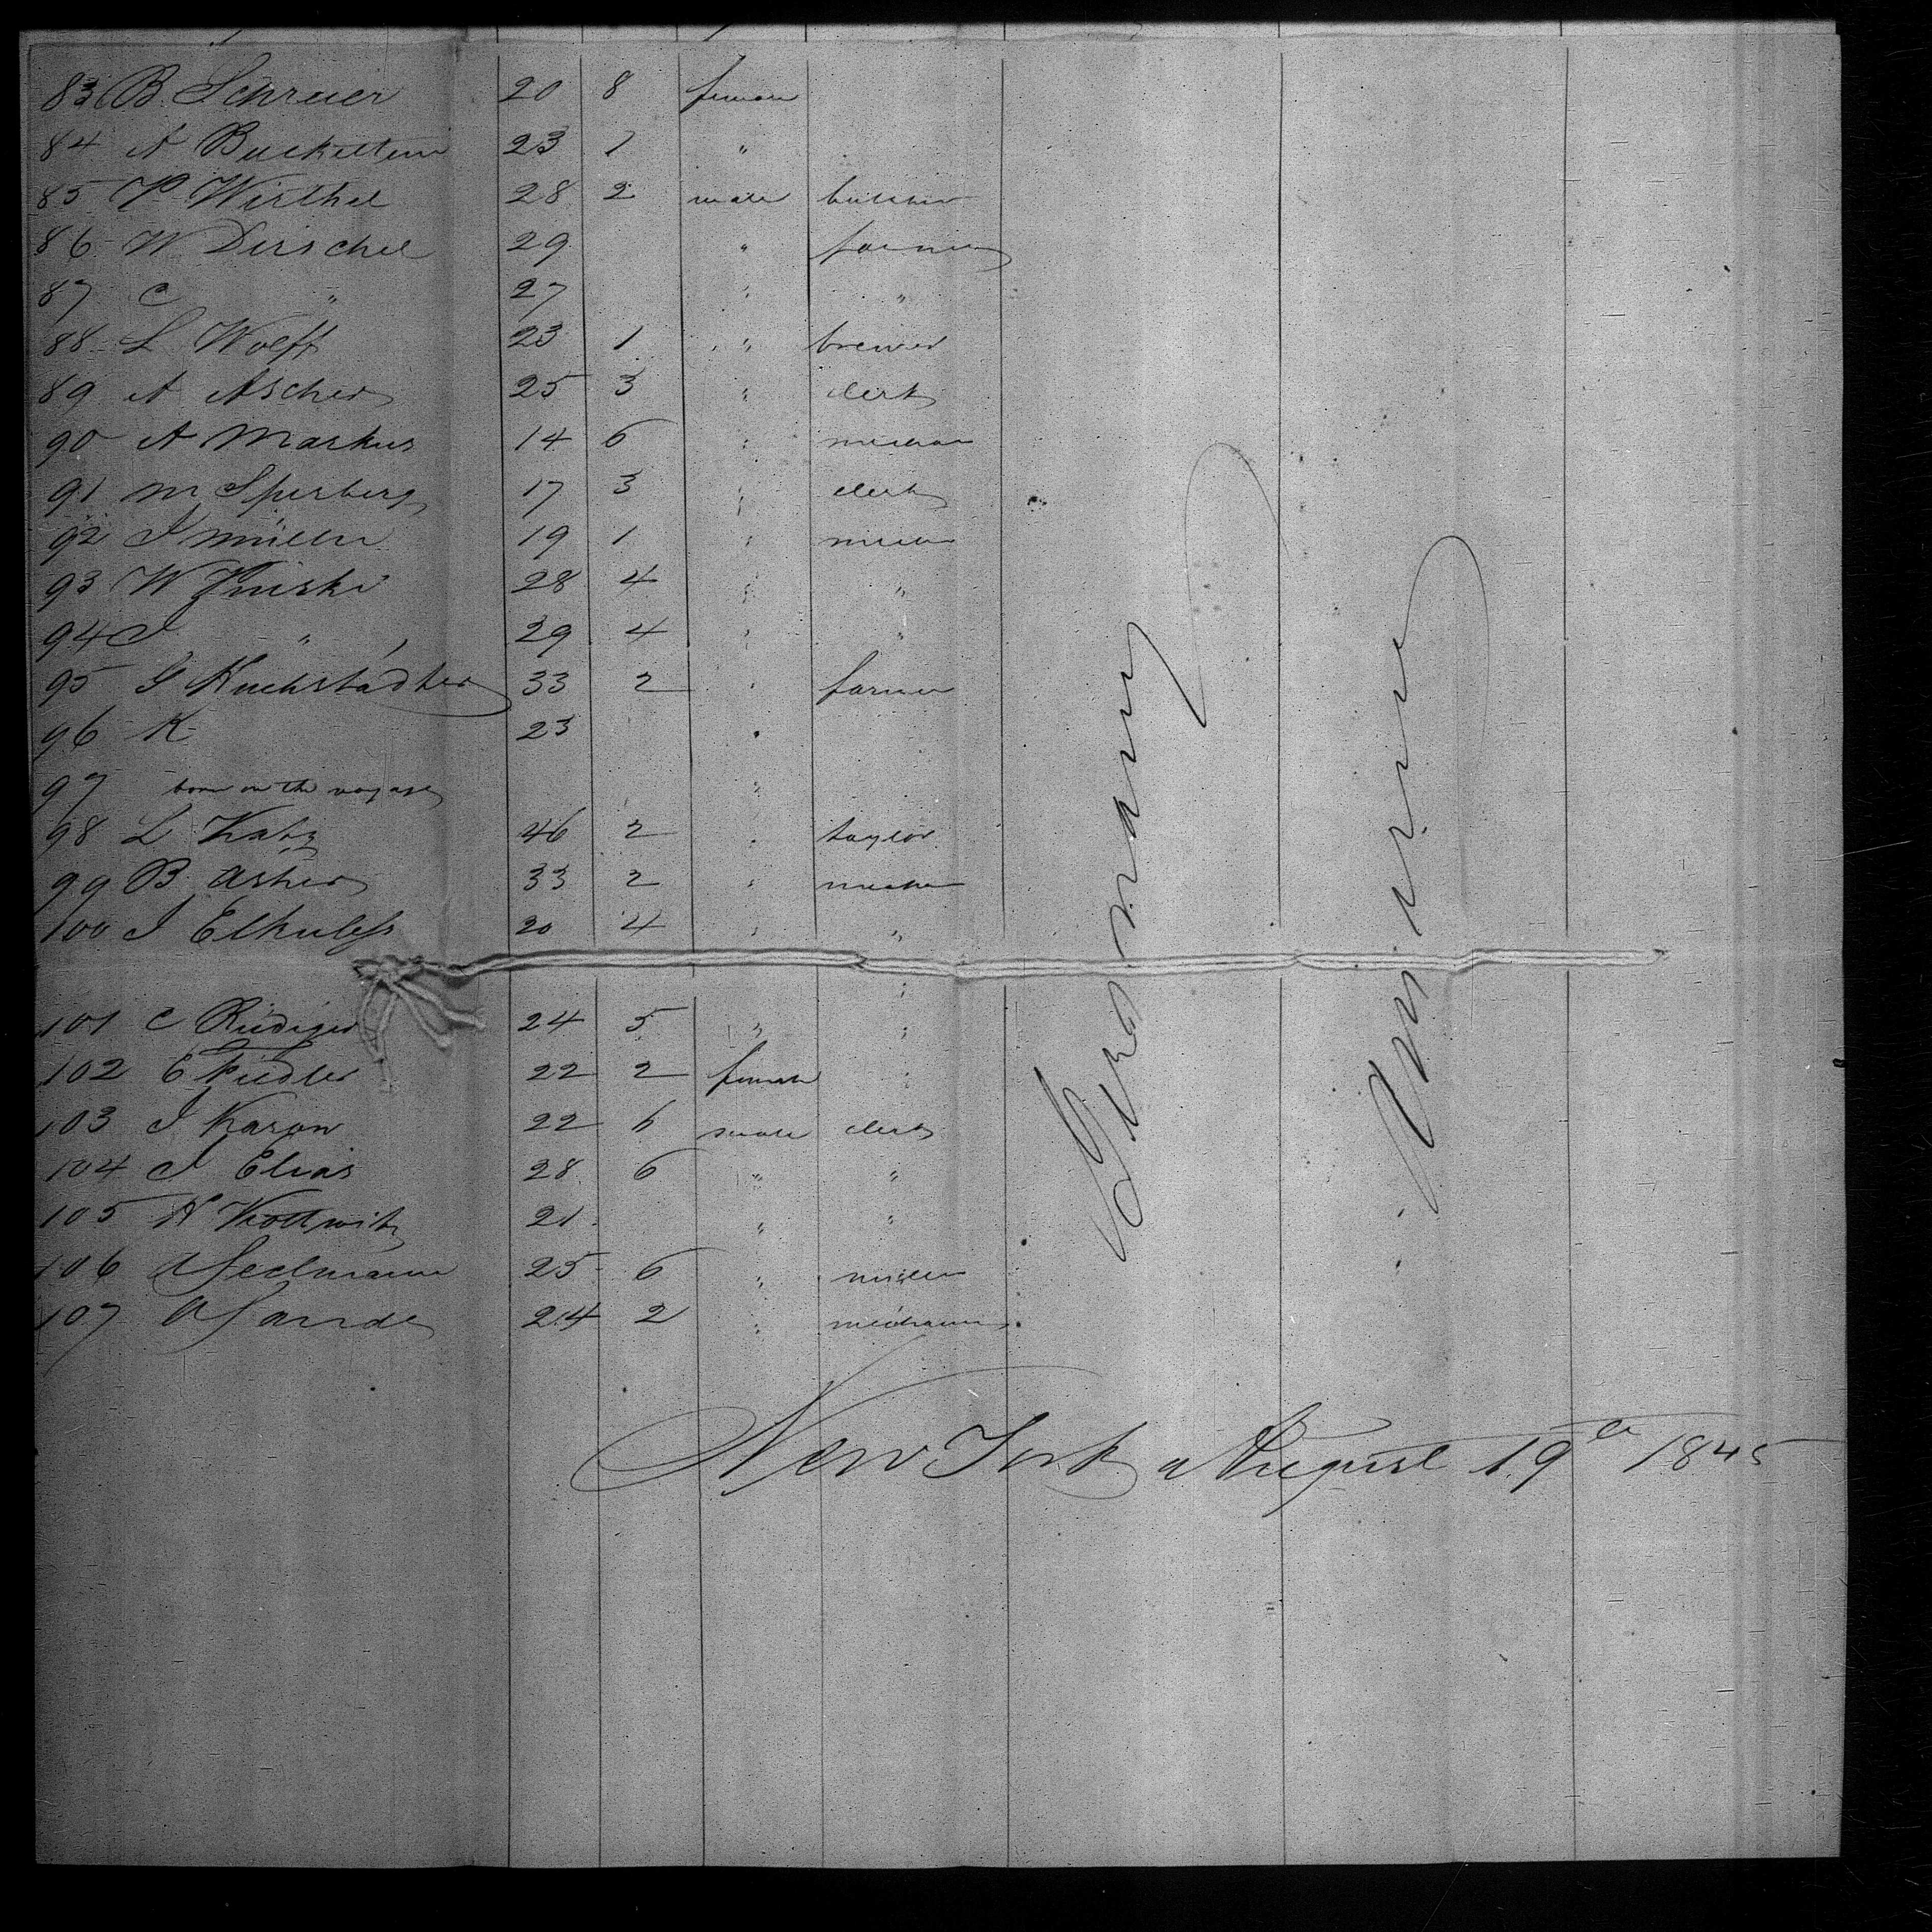 83 B. Schreier 20 8 female
84 A 23 1 "
85 P Wirthel 28 2 male butcher
86 W Dirschel 29 " farmer
87 C " 27 " "
88 L Wolff 23 1 " brewer
89 A Ascher 25 3 " clerk
90 A Markus 14 6 "
91 M Sperberg 17 3 " clerk
92 J Müller 19 1 "
93 W 28 4 " "
94 J " 29 4 " "
95 G 33 2 " farmer
96 K 23 "
97 born on the voyage "
98 L Katz 46 2 " taylor
99 B. Asher 33 2 "
100 J 20 4 " "
101 C Rüdiger 24 5 " "
102 E Fiedler 22 2 female "
103 J Karon 22 6 male clerk
104 J Elias 28 6 " "
105 H Kottwitz 21 " "
106 A Seelmann 25 6 "
107 24 2 " mechanic
Germany
New York August 19th 1845